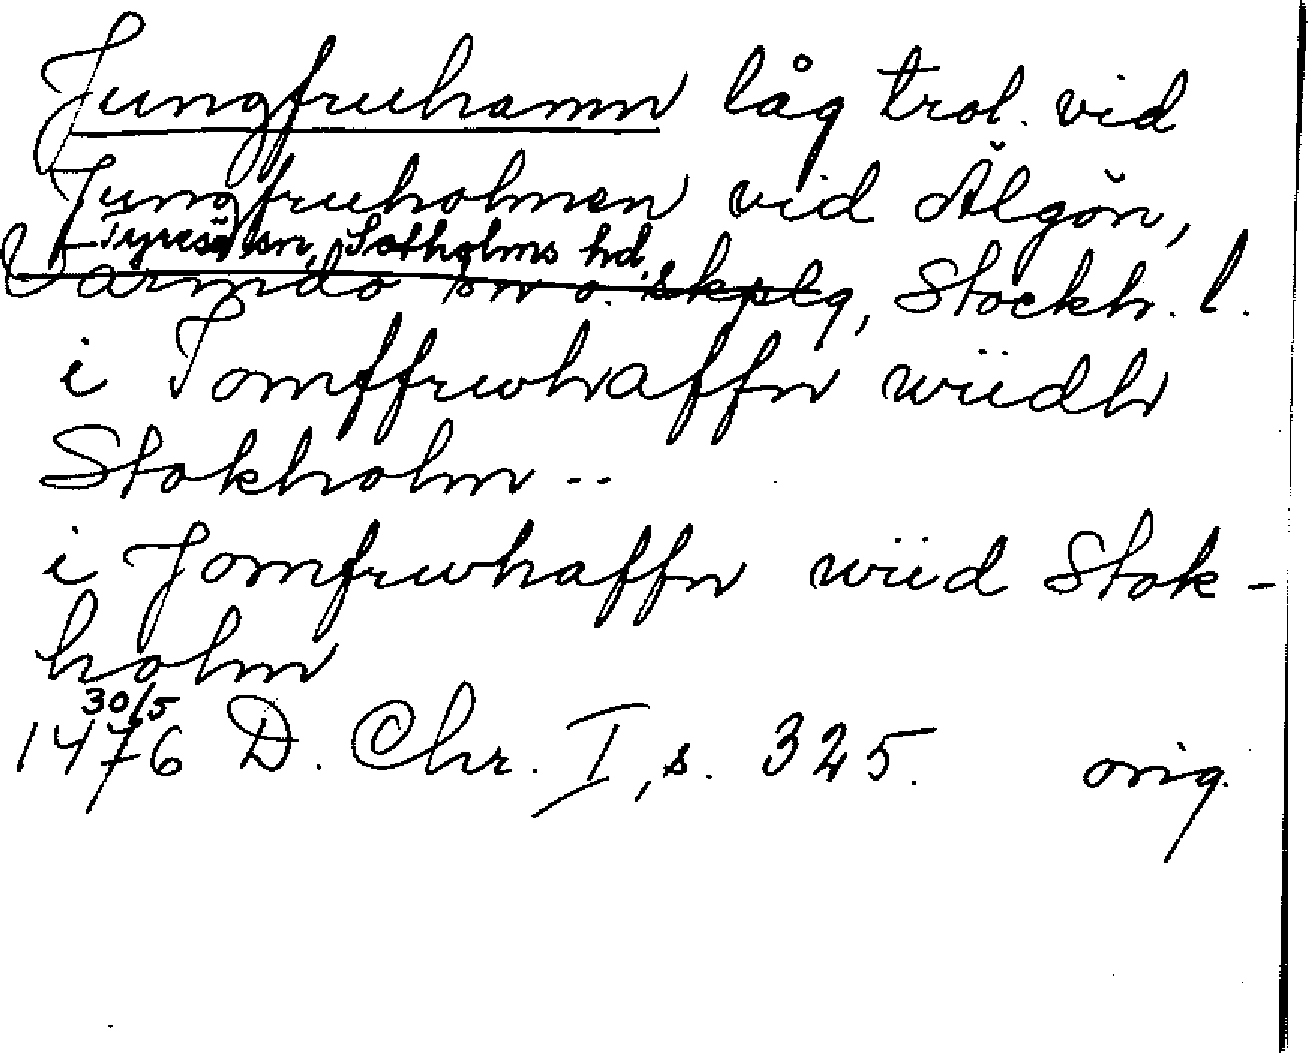 Jungfruhamn låg trol. vid
Jungfruholmen vid Älgön,
Tyresö sn, Sotholms hd.
Värmdö sn o. skplg, Stockh. l.
i Jomffrwhaffn wiidh
Stokholm --
i Jomfrwhaffn wiid Stok-
holm
30/5
1476 D. Chr. I, s. 325. orig.